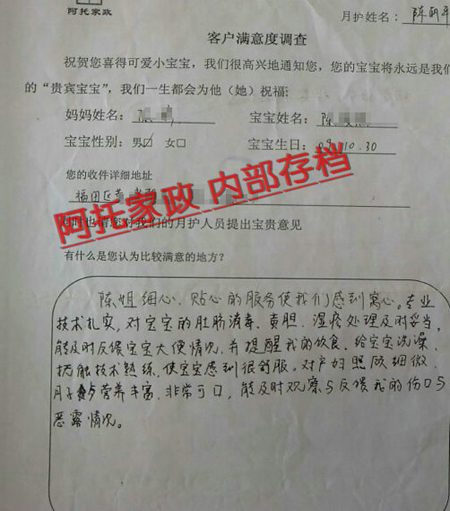 阿托家政
月护姓名：陈
客户满意度调查
祝贺您喜得可爱小宝宝，我们很高兴地通知您，您的宝宝将永远是我们
的“贵宾宝宝”，我们一生都会为他（她）祝福：
妈妈姓名：
宝宝姓名：陈
宝宝性别：男☑ 女□
宝宝生日：09.10.30
您的收件详细地址
福田区
阿托家政 内部存档
们的月护人员提出宝贵意见
有什么是您认为比较满意的地方？
陈姐细心、贴心的服务使我们感到窝心。专业
技术扎实，对宝宝的肚脐消毒、黄胆、湿疹处理及时妥当，
能及时反馈宝宝大便情况，并提醒我的饮食。给宝宝洗澡、
抚触技术熟练，使宝宝感到很舒服。对产妇照顾细微，
月子营养丰富，非常可口，能及时观察与反馈我的伤口与
恶露情况。